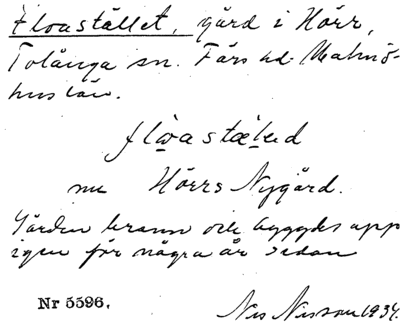 Floastället, gård i Hörr,
Tolånga sn. Färs hd. Malmö-
hus län.
flωastælεd
nu Hörrs Nygård.
Gården brann och byggdes upp
igen för några år sedan
Nr 5596.
Nils Nilsson 1934.